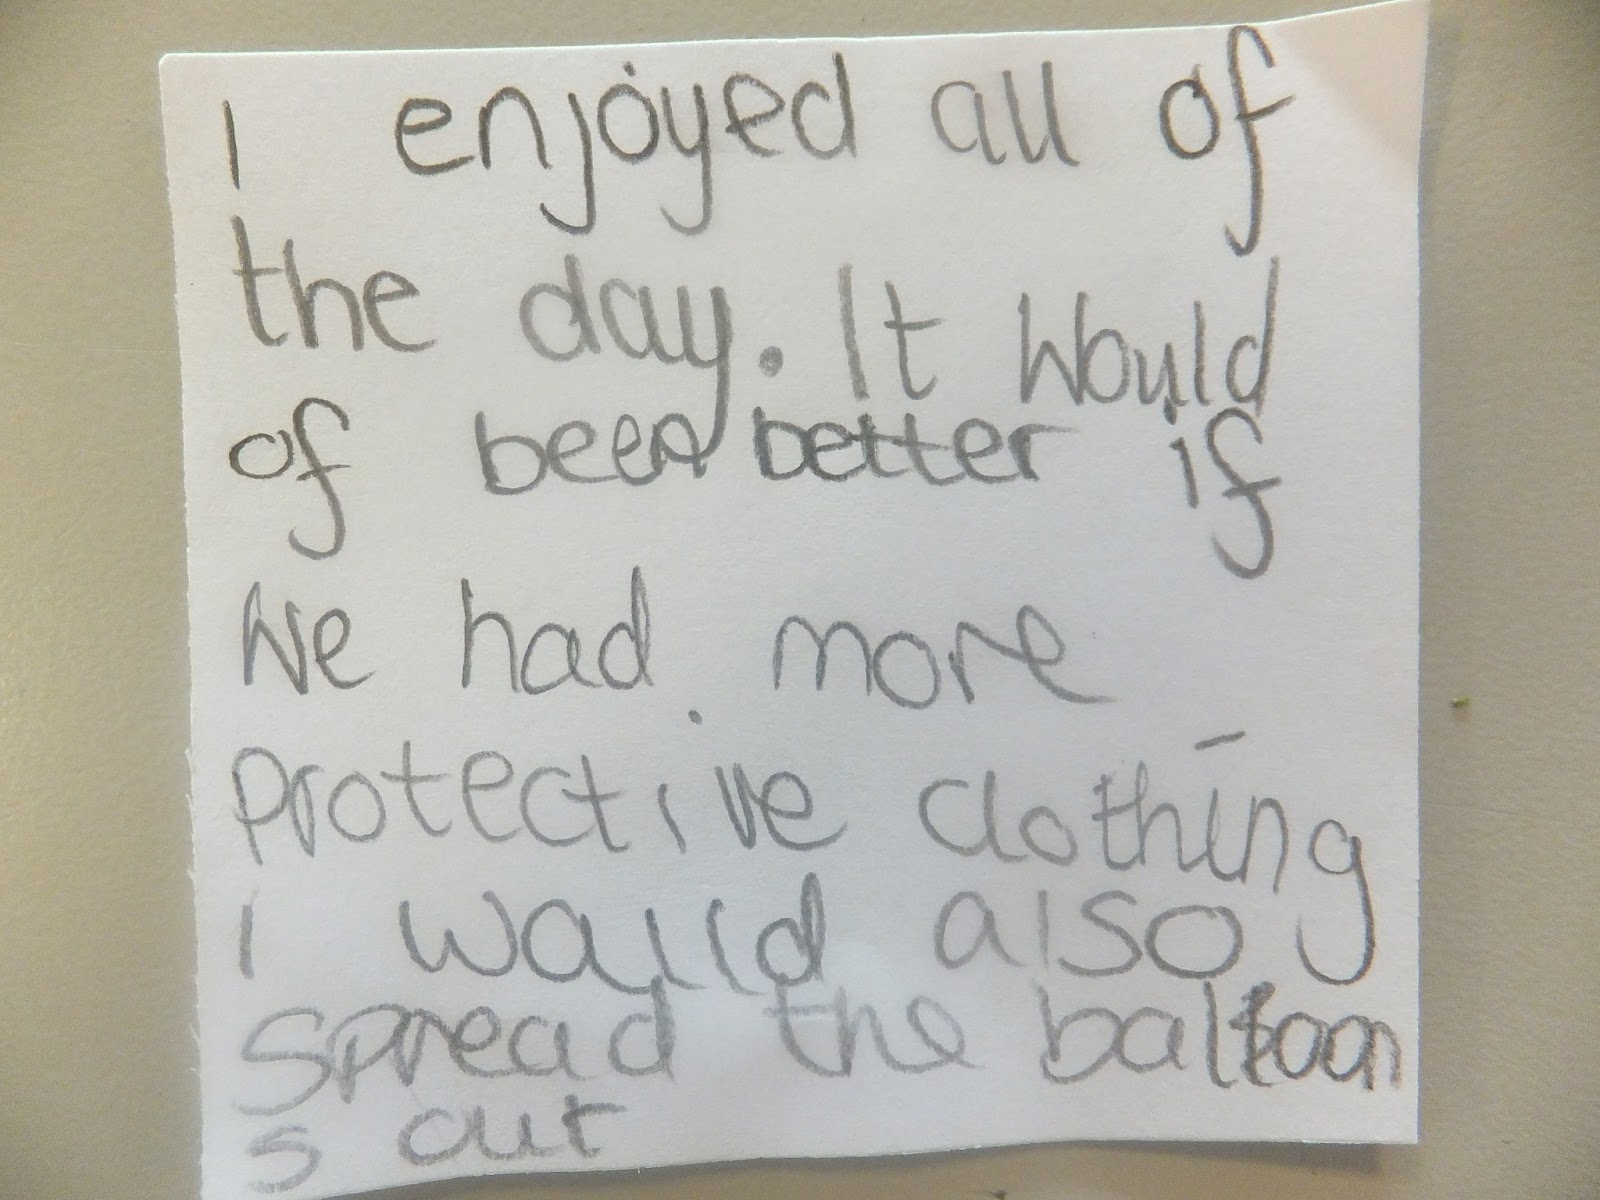 I enjoyed all of
the day. It Would
of been better if
We had more
protective clothing
I would also
spread the balloon
s out